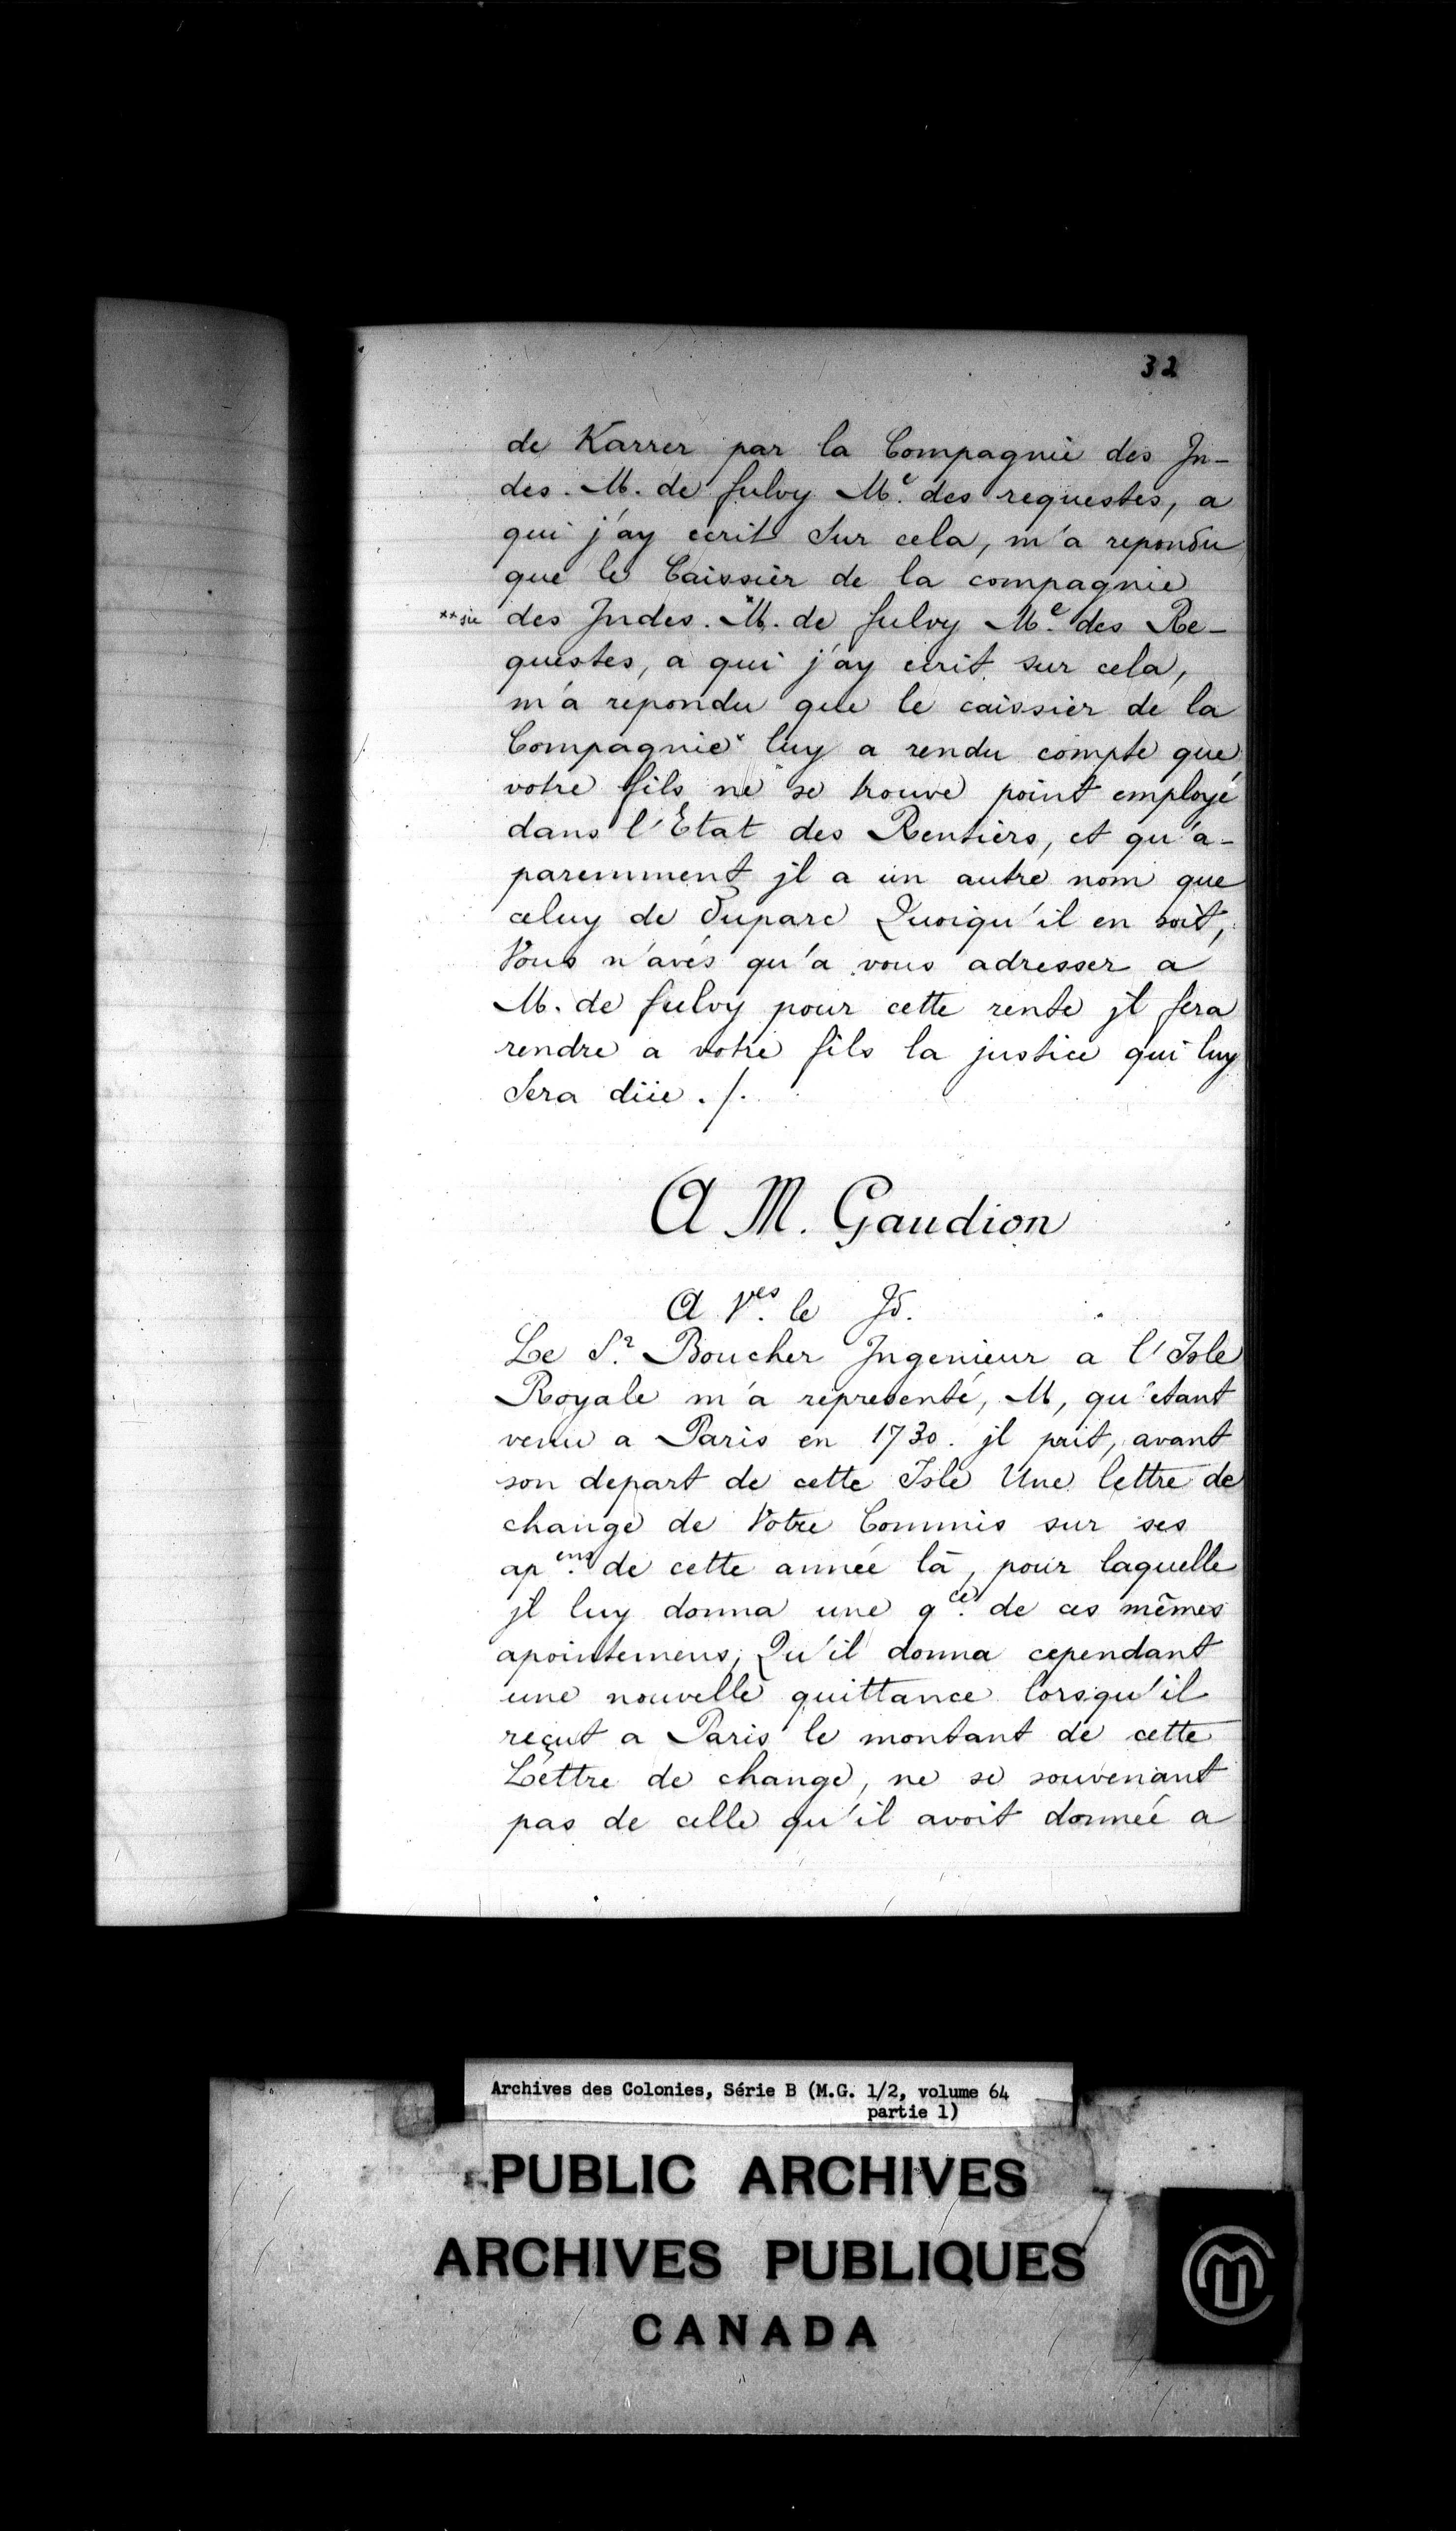 32
de Karrer par la Compagnie des Jn-
des. M. de fulvy Me. des requestes, a
qui j'ay ecrit Sur cela, m'a repondu
que le Caissier de la compagnie
**sic des Jndes. *M. de fulvy Me. des Re-
questes, a qui j'ay ecrit sur cela,
m'a repondu que le caissier de la
Compagnie* luy a rendu compte que
votre fils ne se trouve point employé
dans l'Etat des Rentiers, et qu'a-
paremment jl a un autre nom que
celuy de Duparc Quoiqu'il en soit,
Vous n'avés qu'a vous adresser a
M. de fulvy pour cette rente jl fera
rendre a votre fils la justice qui luy
Sera düe ./.
A M. Gaudion
A Ves. le Jd.
Le Sr. Boucher Jngenieur a l'Isle
Royale m'a representé, M, qu'etant
venu a Paris en 1730. jl prit, avant
son depart de cette Isle Une lettre de
change de Votre Commis sur ses
apens. de cette année là, pour laquelle
jl luy donna une qce. de ces mêmes
apointemens, Qu'il donna cependant
une nouvelle quittance lorsqu'il
reçut a Paris le montant de cette
Lettre de change, ne se souvenant
pas de celle qu'il avoit donnée a
Archives des Colonies, Série B (M.G. 1/2, volume 64
partie 1)
PUBLIC ARCHIVES
ARCHIVES PUBLIQUES
CANADA